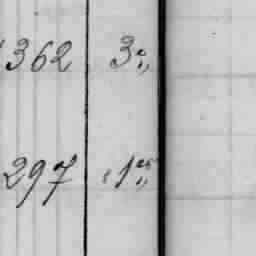 362 3 „
297 1 „